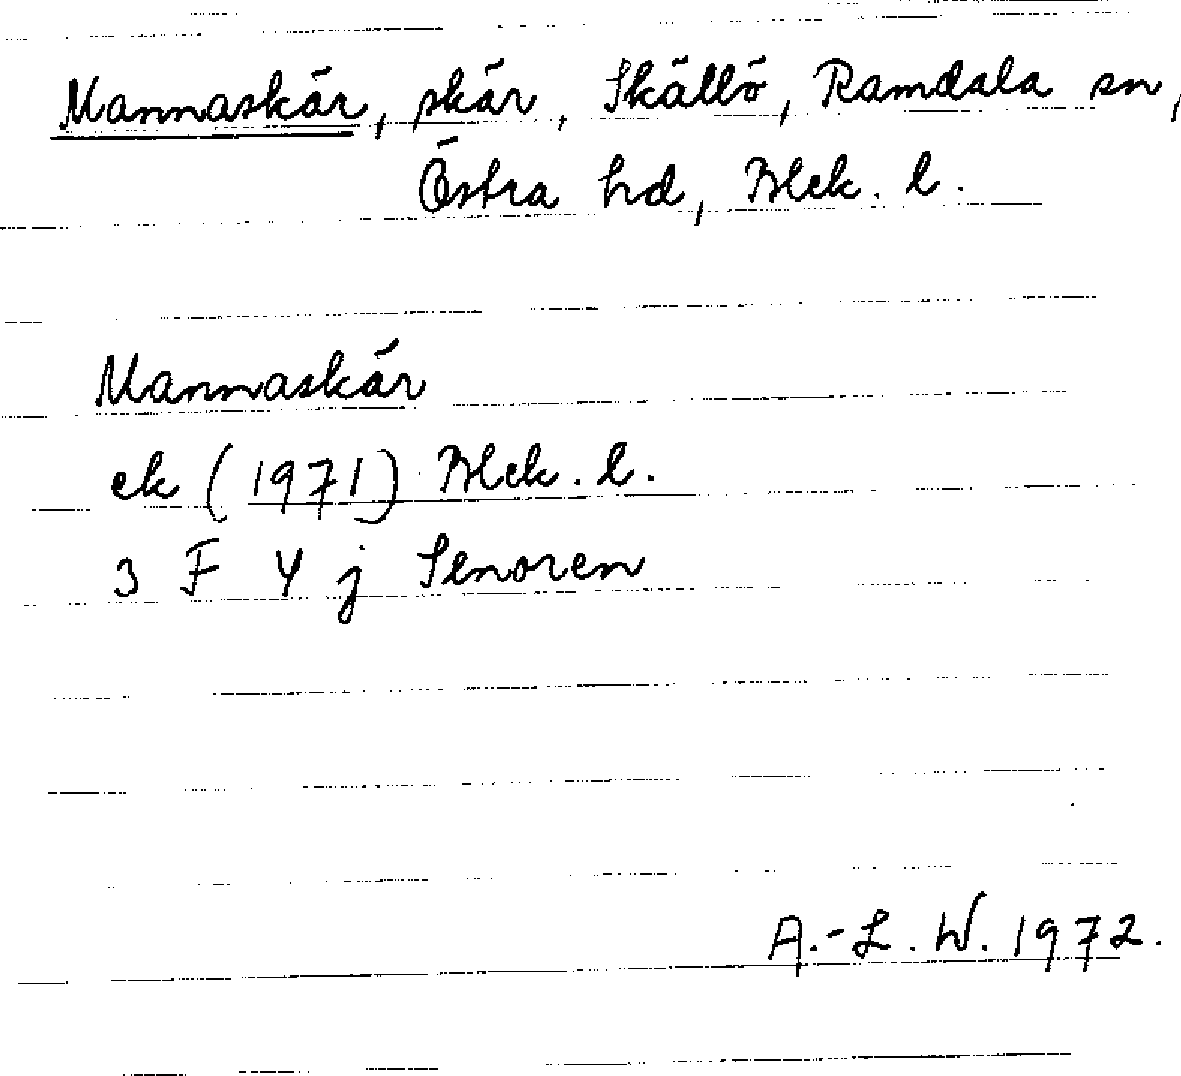 Mannaskär, skär, Skällö, Ramdala sn,
Östra hd, Blek. l.
Mannaskär
ek (1971) Blek. l.
3 F 4 j Senoren
A.-L. W. 1972.